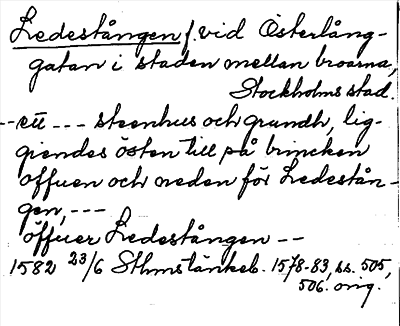 Ledestången f. vid Österlång-
gatan i staden mellan broarna,
Stockholms stad.
--ett --- steenhus och grundh, lig-
giendes östen till på brincken
offuen och neden för Ledestån-
gen, ---
öffuer Ledestången --
1582 23/6 Sthmstänkeb. 1578-83, ss. 505,
506. orig.